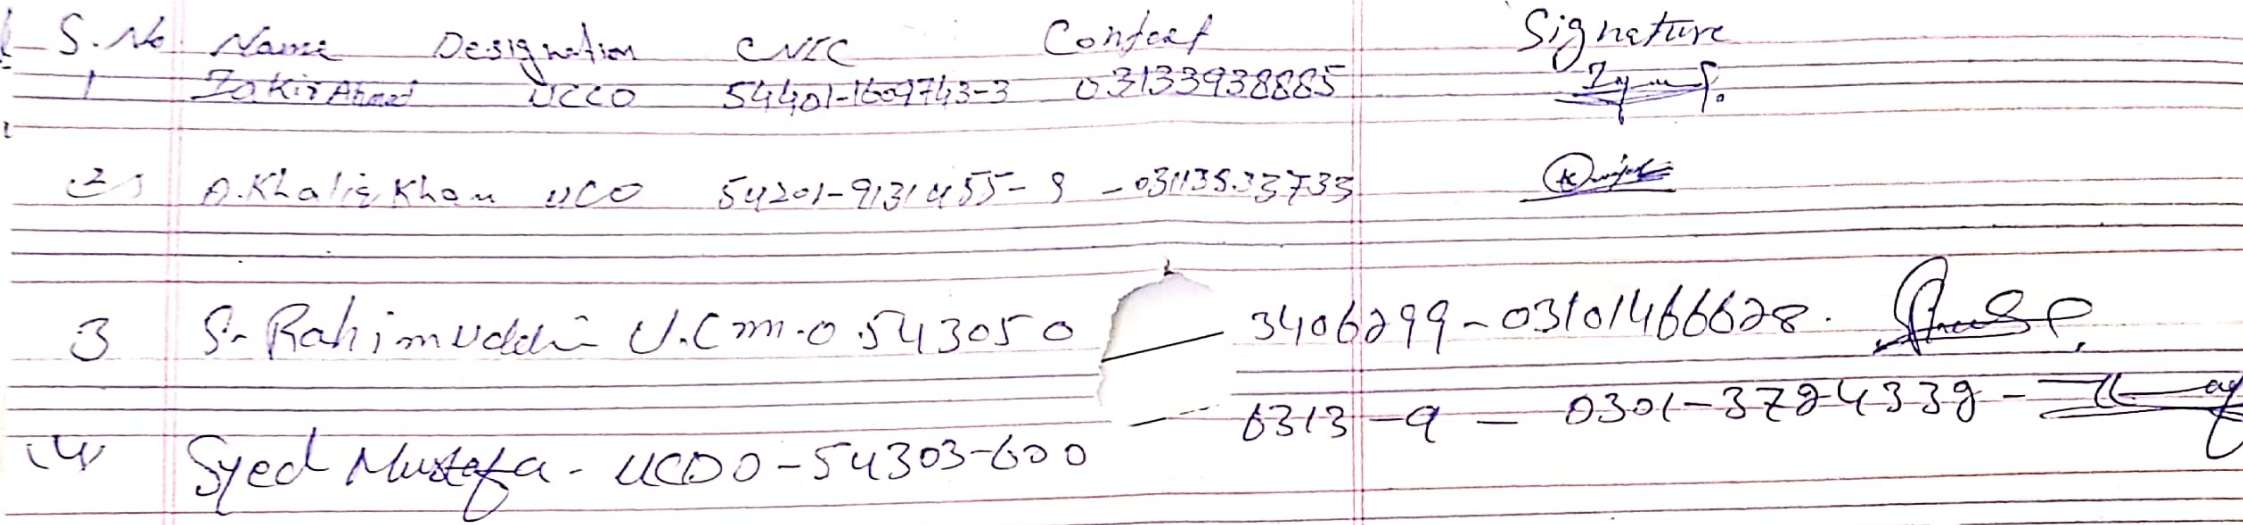 S.No Name Designation CNIC Contact Signature
1 Zakir Ahmed UCCO 54401-1609743-3 03133938885
2 A.Khaliq Khan UCO 54201-9131455-9 - 03113533733
3 S. Rahimuddin U.C m.o 543050 3406299 - 03101466628.
(4) Syed Mustafa - UCDO - 54303-600 6313-9 - 0301-3724339 -